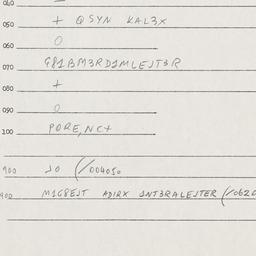 040
050 + QSYN KAL3X
060 0
070 G81BM3RD1MLEJT3R
080 +
090 0
100 PORE,NC+
900 JO (/004010
900 M1G8EJT ADIRX INT3RALEJTER (/062